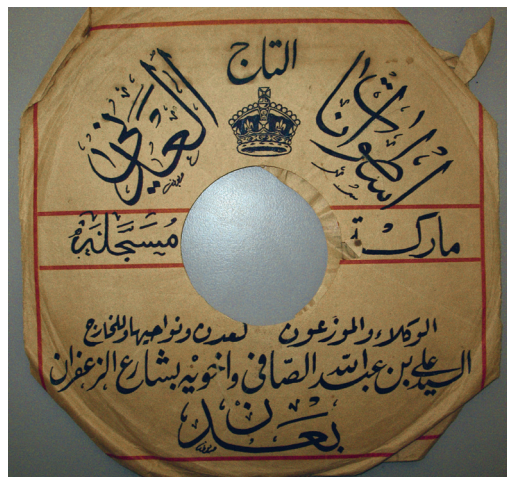 اسطوانات التاج العدني
ماركة مسجلة
الوكلاء والموزعون لعدن ونواحيها وللخارج
السيد علي بن عبدالله الصافي واخويه بشارع الزعفران
بعدن